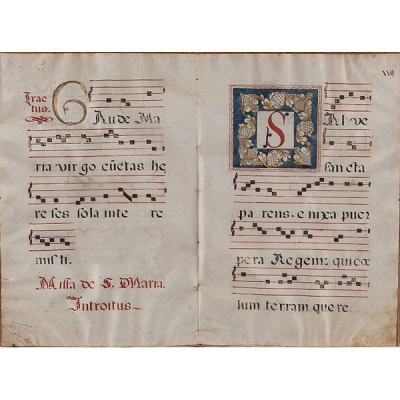 Trac
tus.
G
Aude Ma
ria virgo cūctas he
reses sola inte re
misti.
Missa de S. Maria.
Introitus
xvij
S
Alve
sancta
parens. enixa puer
pera Regem: qui cœ
lum terram que re